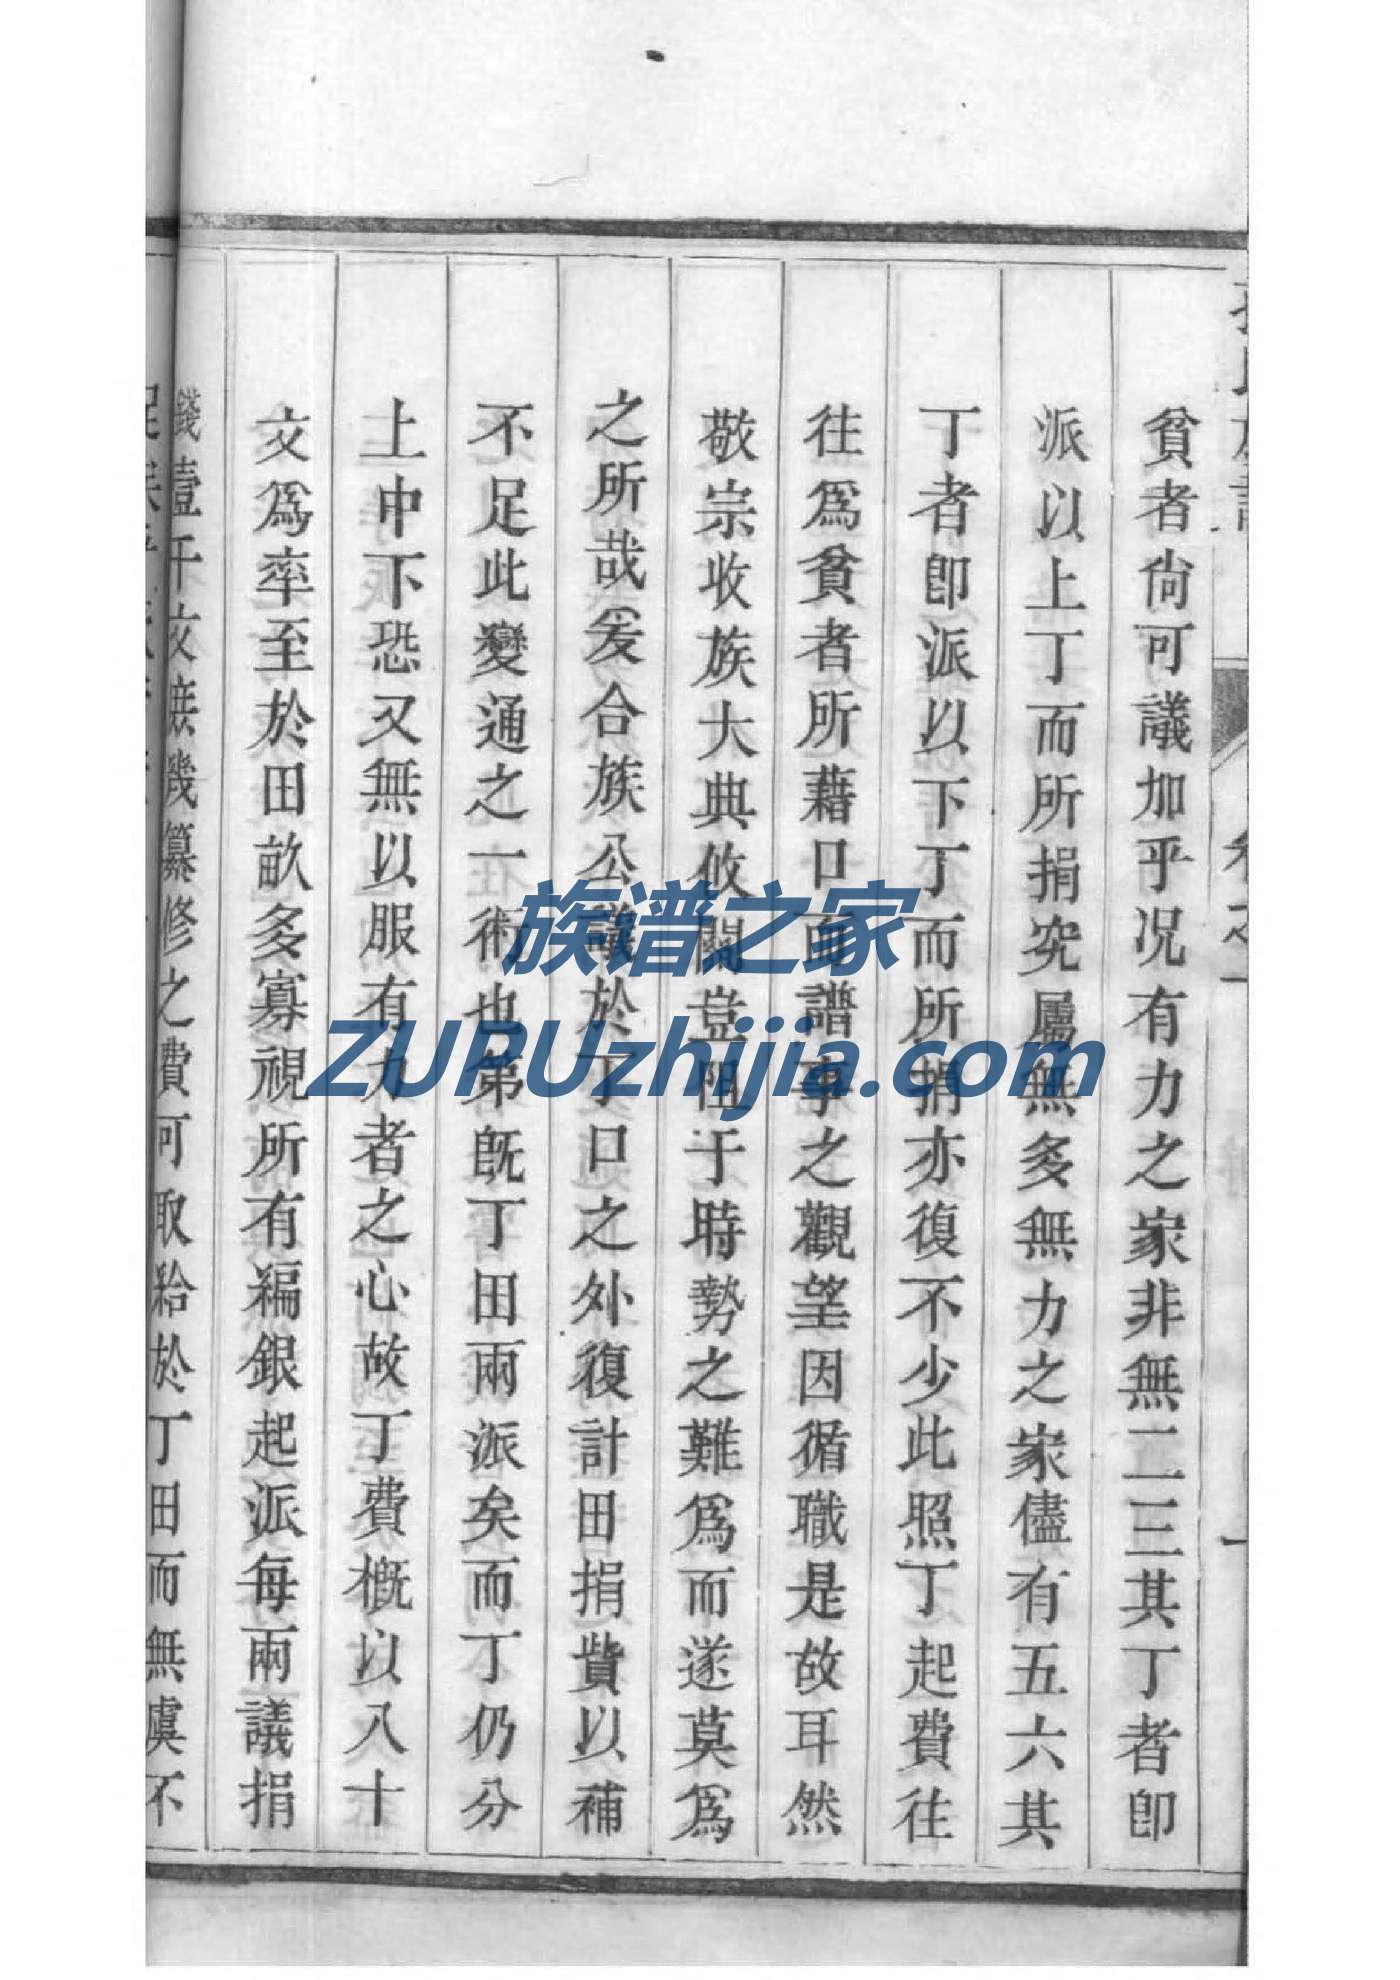 貧者尚可議加乎况有力之家非無二三其丁者卽
派以上丁而所捐究屬無多無力之家儘有五六其
丁者卽派以下丁而所捐亦復不少此照丁起費往
往爲貧者所藉口而譜事之觀望因循職是故耳然
敬宗收族大典攸關豈阻于時勢之難爲而遂莫爲
之所哉爰合族公議於丁口之外復計田捐貲以補
不足此變通之一術也第旣丁田兩派矣而丁仍分
上中下恐又無以服有力者之心故丁費概以八十
文爲率至於田畝多寡視所有編銀起派每兩議捐
錢壹千文庶幾纂修之費可取給於丁田而無虞不
卷之一
族谱之家
ZUPUzhijia.com